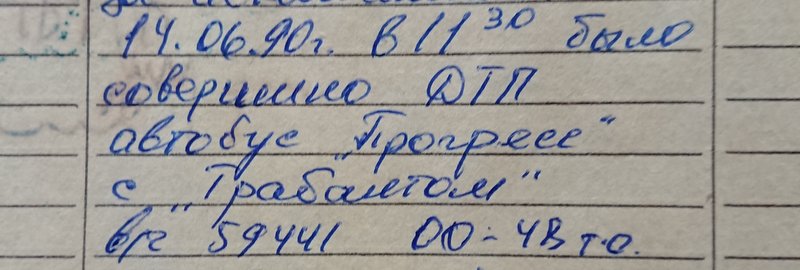 14.06.90г. в 11 30 было
совершно ДТП
автобус „Прогресс"
с „Трабантом"
в/г 59441 00-4В т.о.